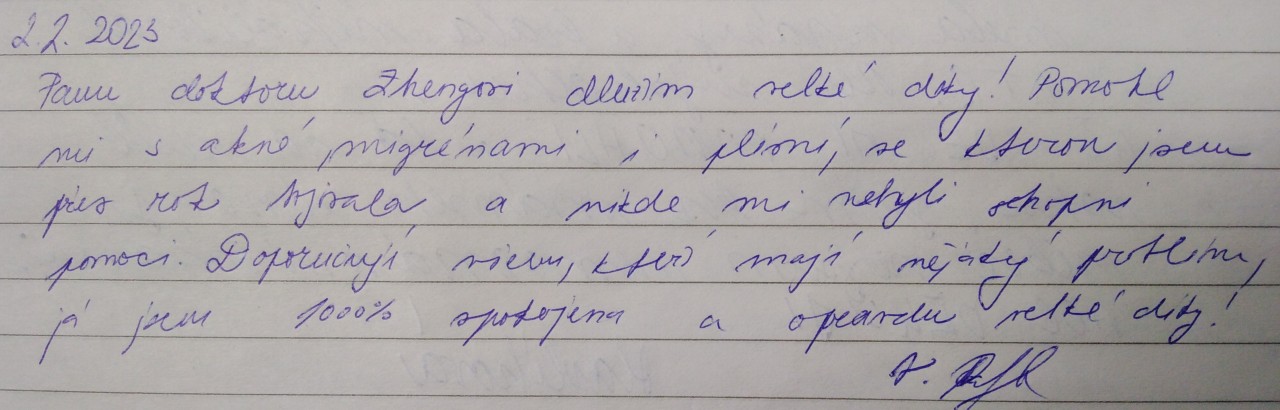 2.2. 2023
Panu doktoru Zhengovi dlužím velké díky! Pomohl
mi s akné, migrénami i plísní, se kterou jsem
přes rok bojovala a nikde mi nebyli schopni
pomoci. Doporučuji všem, kteří mají nějáký problém,
já jsem 1000% spokojena a opravdu velké díky!